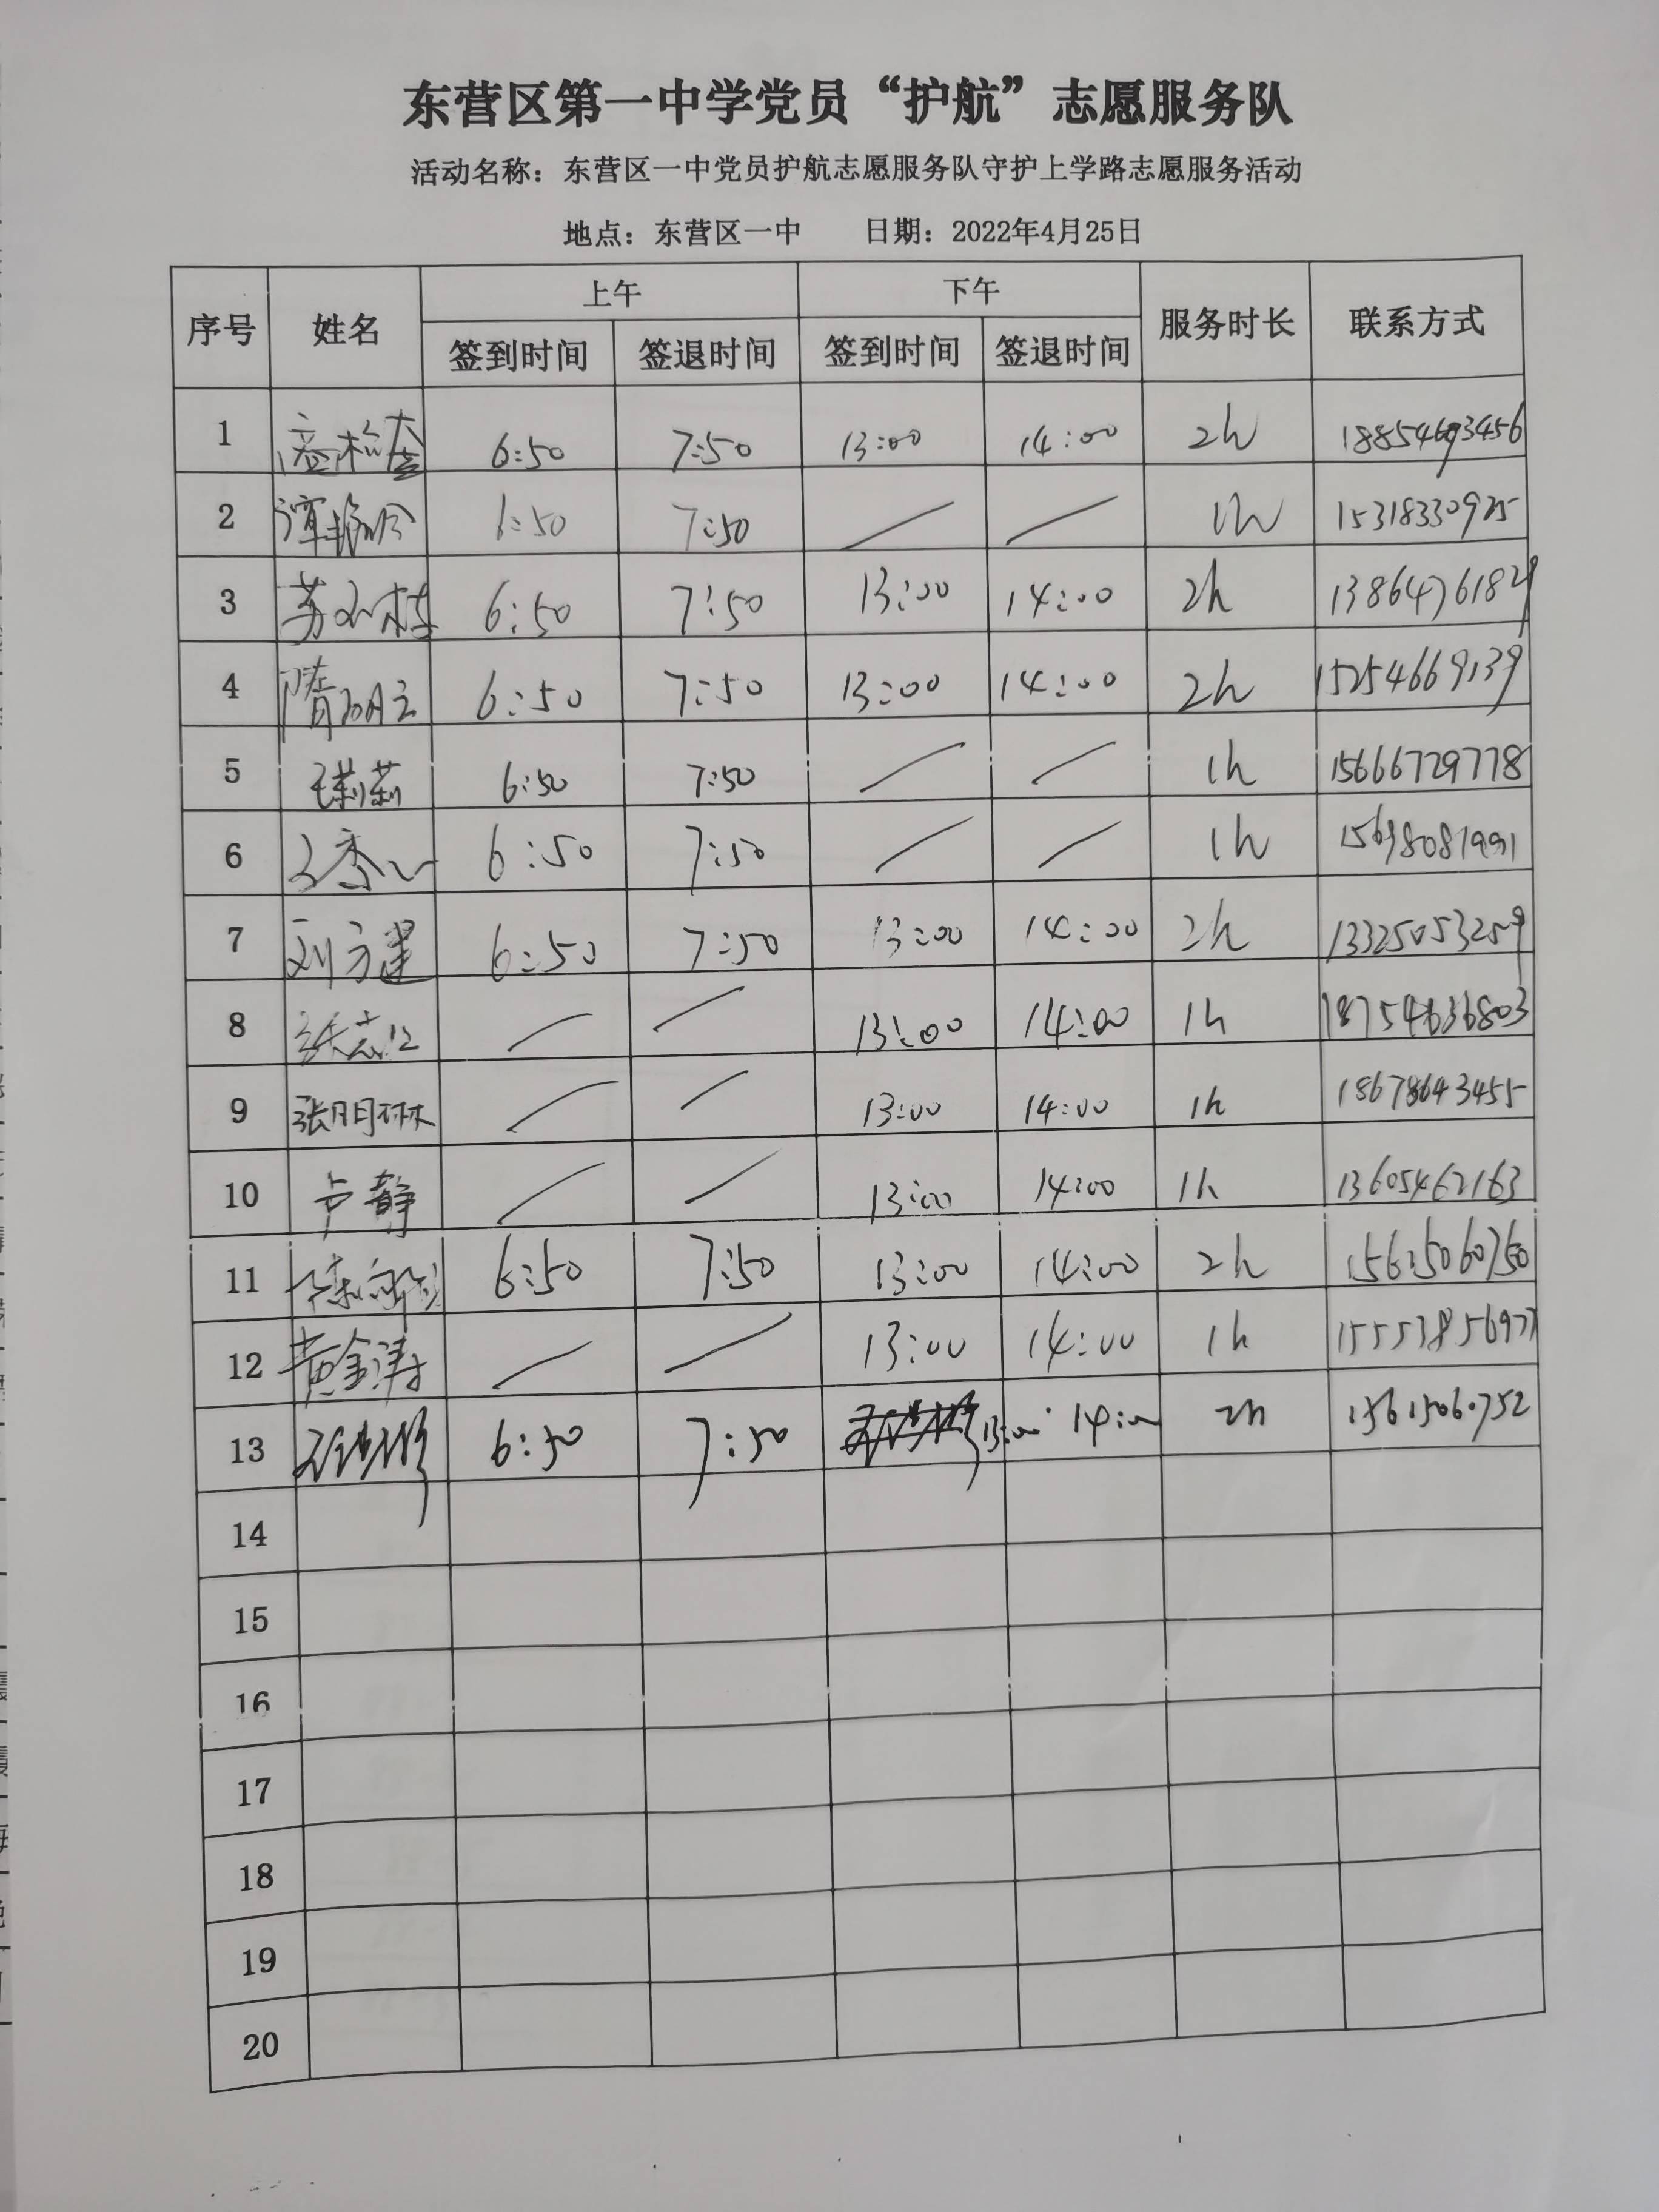 东营区第一中学党员“护航”志愿服务队
活动名称：东营区一中党员护航志愿服务队守护上学路志愿服务活动
地点：东营区一中 日期：2022年4月25日
序号 姓名 上午 下午 服务时长 联系方式
签到时间 签退时间 签到时间 签退时间
1 6:50 7:50 13:00 14:00 2h 18854693456
2 6:50 7:50 / / 1h 15318330925
3 6:50 7:50 13:00 14:00 2h
4 6:50 7:50 13:00 14:00 2h 15254669139
5 王莉莉 6:50 7:50 / / 1h 15666729778
6 6:50 7:50 / / 1h 15698081991
7 刘方建 6:50 7:50 13:00 14:00 2h 13325053259
8 / / 13:00 14:00 1h 18754636803
9 张明琳 / / 13:00 14:00 1h 18678643455
10 卢静 / / 13:00 14:00 1h 13605462163
11 6:50 7:50 13:00 14:00 2h 15615060750
12 黄金涛 / / 13:00 14:00 1h
13 6:50 7:50 13:00 14:00 2h 15615060752
14
15
16
17
18
19
20